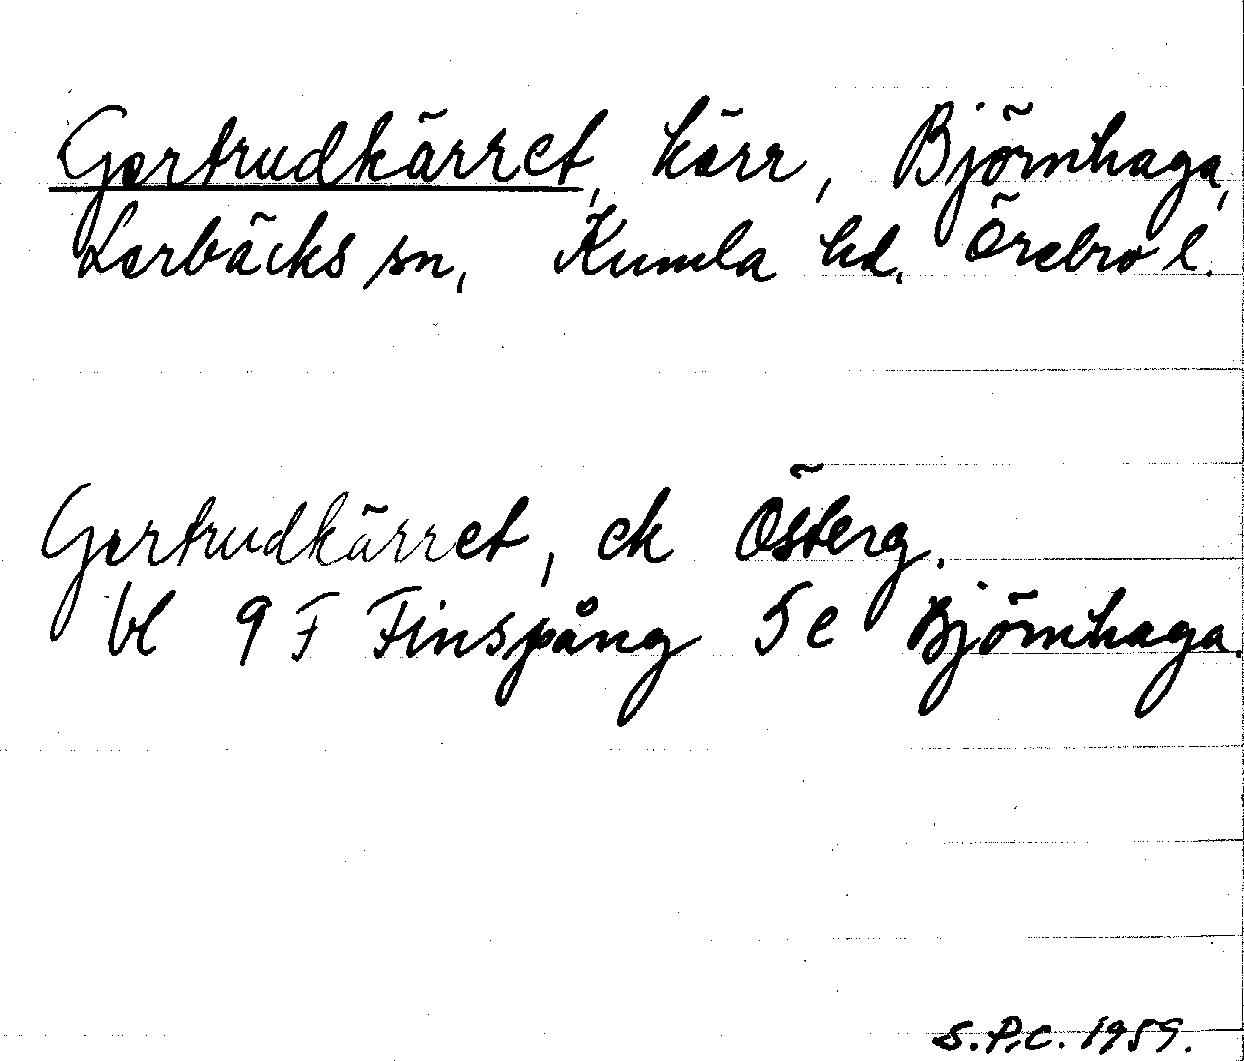 Gertrudkärret, kärr, Björnhaga,
Lerbäcks sn, Kumla hd. Örebro l.
Gertrudkärret, ek Österg.
bl 9 F Finspång 5 e Björnhaga.
S.P.C. 1959.